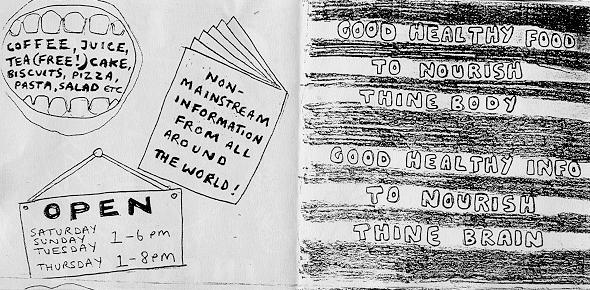 COFFEE, JUICE,
TEA (FREE!), CAKE,
BISCUITS, PIZZA,
PASTA, SALAD ETC
NON-
MAINSTREAM
INFORMATION
FROM ALL
AROUND
THE WORLD!
OPEN
SATURDAY
SUNDAY
TUESDAY
1-6 pm
THURSDAY 1-8pm
GOOD HEALTHY FOOD
TO NOURISH
THINE BODY
GOOD HEALTHY INFO
TO NOURISH
THINE BRAIN